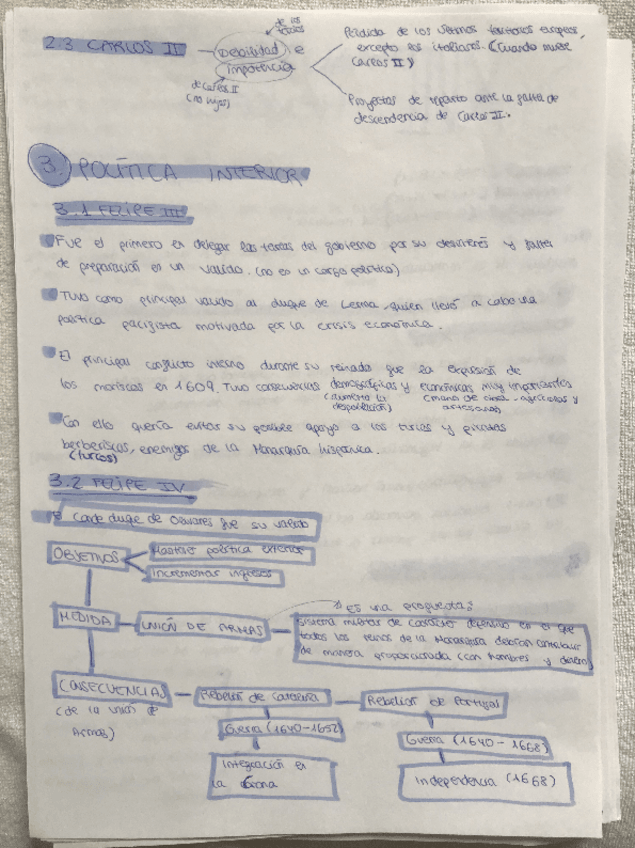 de los
Tercios
2.3 CARLOS II — Debilidad e
impotencia
de Carlos II
(no hijos)
Pérdida de los últimos territorios europeos,
excepto los italianos. (Cuando muere
Carlos II)
Proyectos de reparto ante la falta de
descendencia de Carlos II.
3. POLÍTICA INTERIOR
3.1 FELIPE III
Fue el primero en delegar las tareas del gobierno por su desinterés y falta
de preparación en un valido. (no es un cargo político)
Tuvo como principal valido al duque de Lerma, quien llevó a cabo una
política pacifista motivada por la crisis económica.
El principal conflicto interno durante su reinado fue la expulsión de
los moriscos en 1609. Tuvo consecuencias demográficas y económicas muy importantes
(aumenta la
despoblación)
(mano de obra, agrícolas y
artesanos)
Con ello quería evitar su posible apoyo a los turcos y piratas
berberiscos, enemigos de la Monarquía hispánica.
(turcos)
3.2 FELIPE IV
El Conde duque de Olivares fue su valido
OBJETIVOS
Mantener política exterior
Incrementar ingresos
es una propuesta:
MEDIDA — UNIÓN DE ARMAS — Sistema militar de carácter defensivo en el que
todos los reinos de la Monarquía debían contribuir
de manera proporcionada (con hombres y dinero)
CONSECUENCIAS — Rebelión de Cataluña — Rebelión de Portugal
(de la unión de
Armas)
Guerra (1640-1652)
Integración en
la Corona
Guerra (1640-1668)
Independencia (1668)